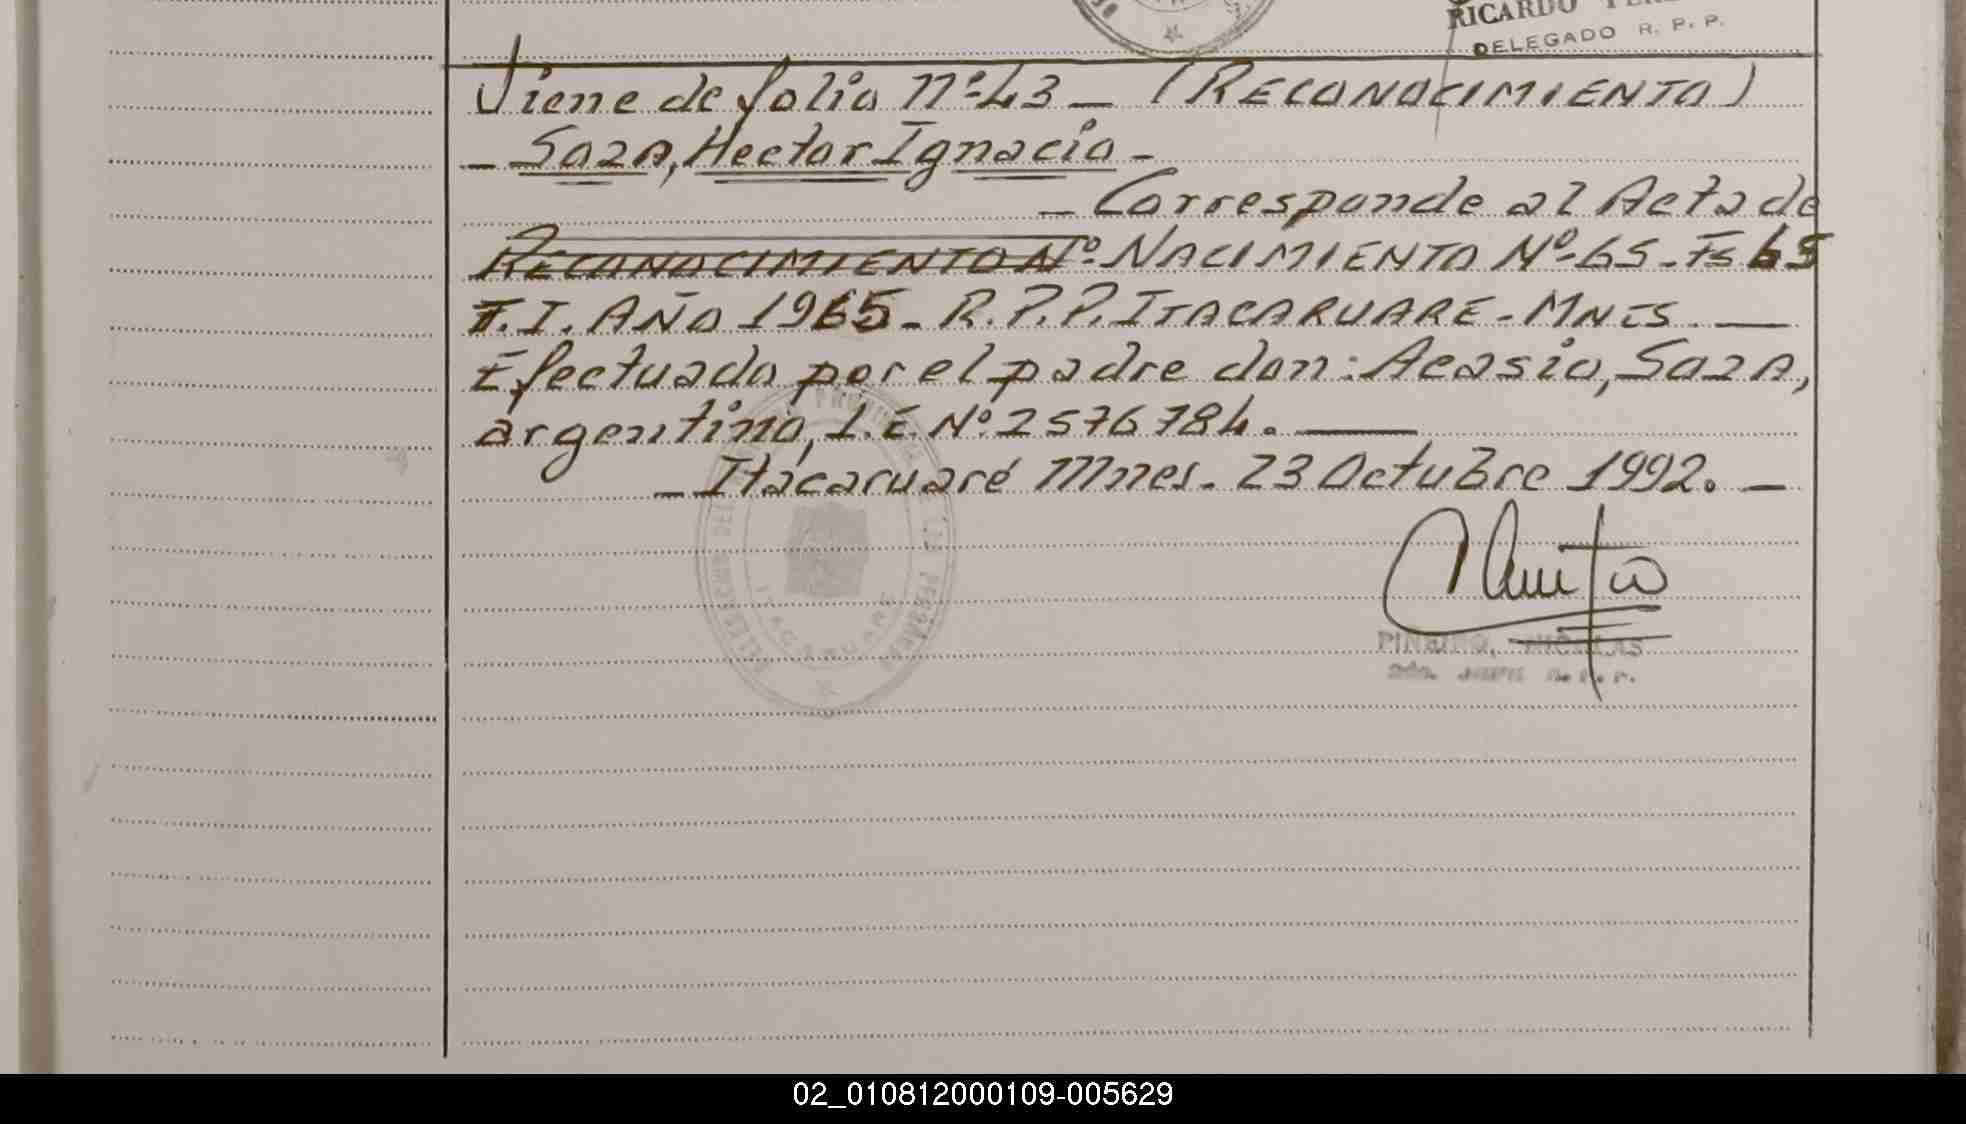 RICARDO
DELEGADO R. P. P.
Viene de folio nº 43 _ (RECONOCIMIENTO)
_ Soza, Hector Ignacio _
_ Corresponde al Acta de
RECONOCIMIENTO Nº. NACIMIENTO Nº 65 _ Fs 65
T. I. AÑO 1965 _ R.P.P. ITACARUARE - MNES. _
Efectuada por el padre don: Acasio, Soza,
argentino, L.E. Nº. 2576784. _
_ Itacaruaré Mnes. 23 Octubre 1992. _
PIÑEIRO, NICOLAS
R. P. P.
ITACARUARE
02_010812000109-005629